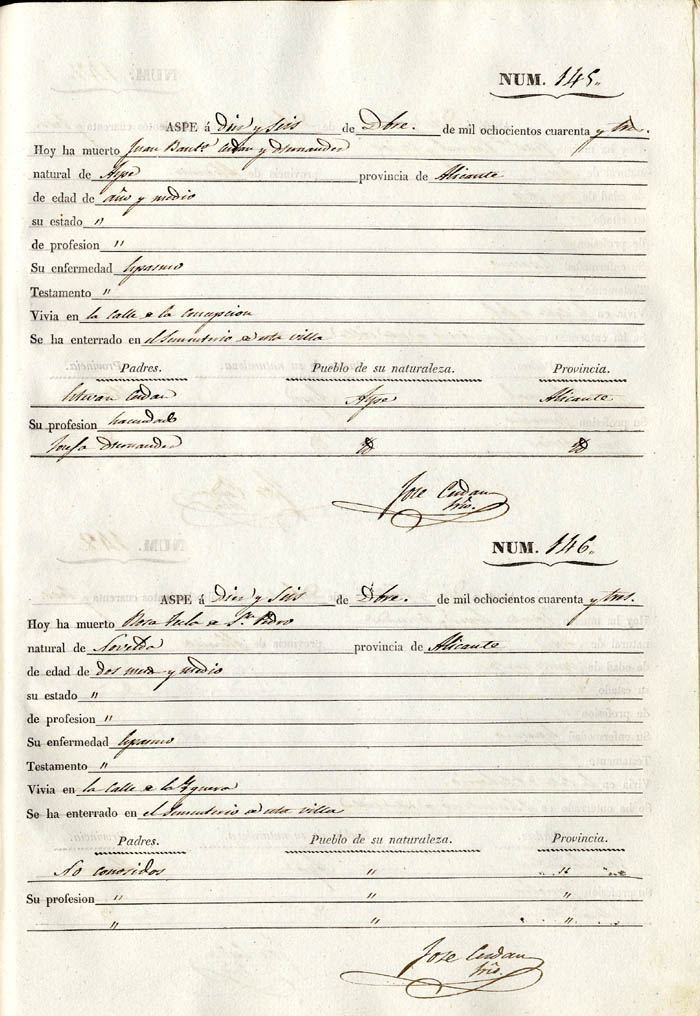 NUM. 145.
ASPE á Diez y Seis de Dbre. de mil ochocientos cuarenta y tres.
Hoy ha muerto Juan Baut.ª y Hernandez
natural de Aspe provincia de Alicante
de edad de año y medio
su estado "
de profesion "
Su enfermedad Espasmo
Testamento "
Vivia en la Calle de la Concepcion
Se ha enterrado en el Sementerio de esta villa
Padres. Pueblo de su naturaleza. Provincia.
Estevan Aspe Alicante
Su profesion hacendado
Josefa Hernandez
Jose
NUM. 146.
ASPE á Diez y Seis de Dbre. de mil ochocientos cuarenta y tres.
Hoy ha muerto Rosa de Sn. Pedro
natural de Novelda provincia de Alicante
de edad de dos meses y medio
su estado "
de profesion "
Su enfermedad Espasmo
Testamento "
Vivia en la Calle de la
Se ha enterrado en el Sementerio de esta villa
Padres. Pueblo de su naturaleza. Provincia.
No conosidos " "
Su profesion " " "
" " "
Jose